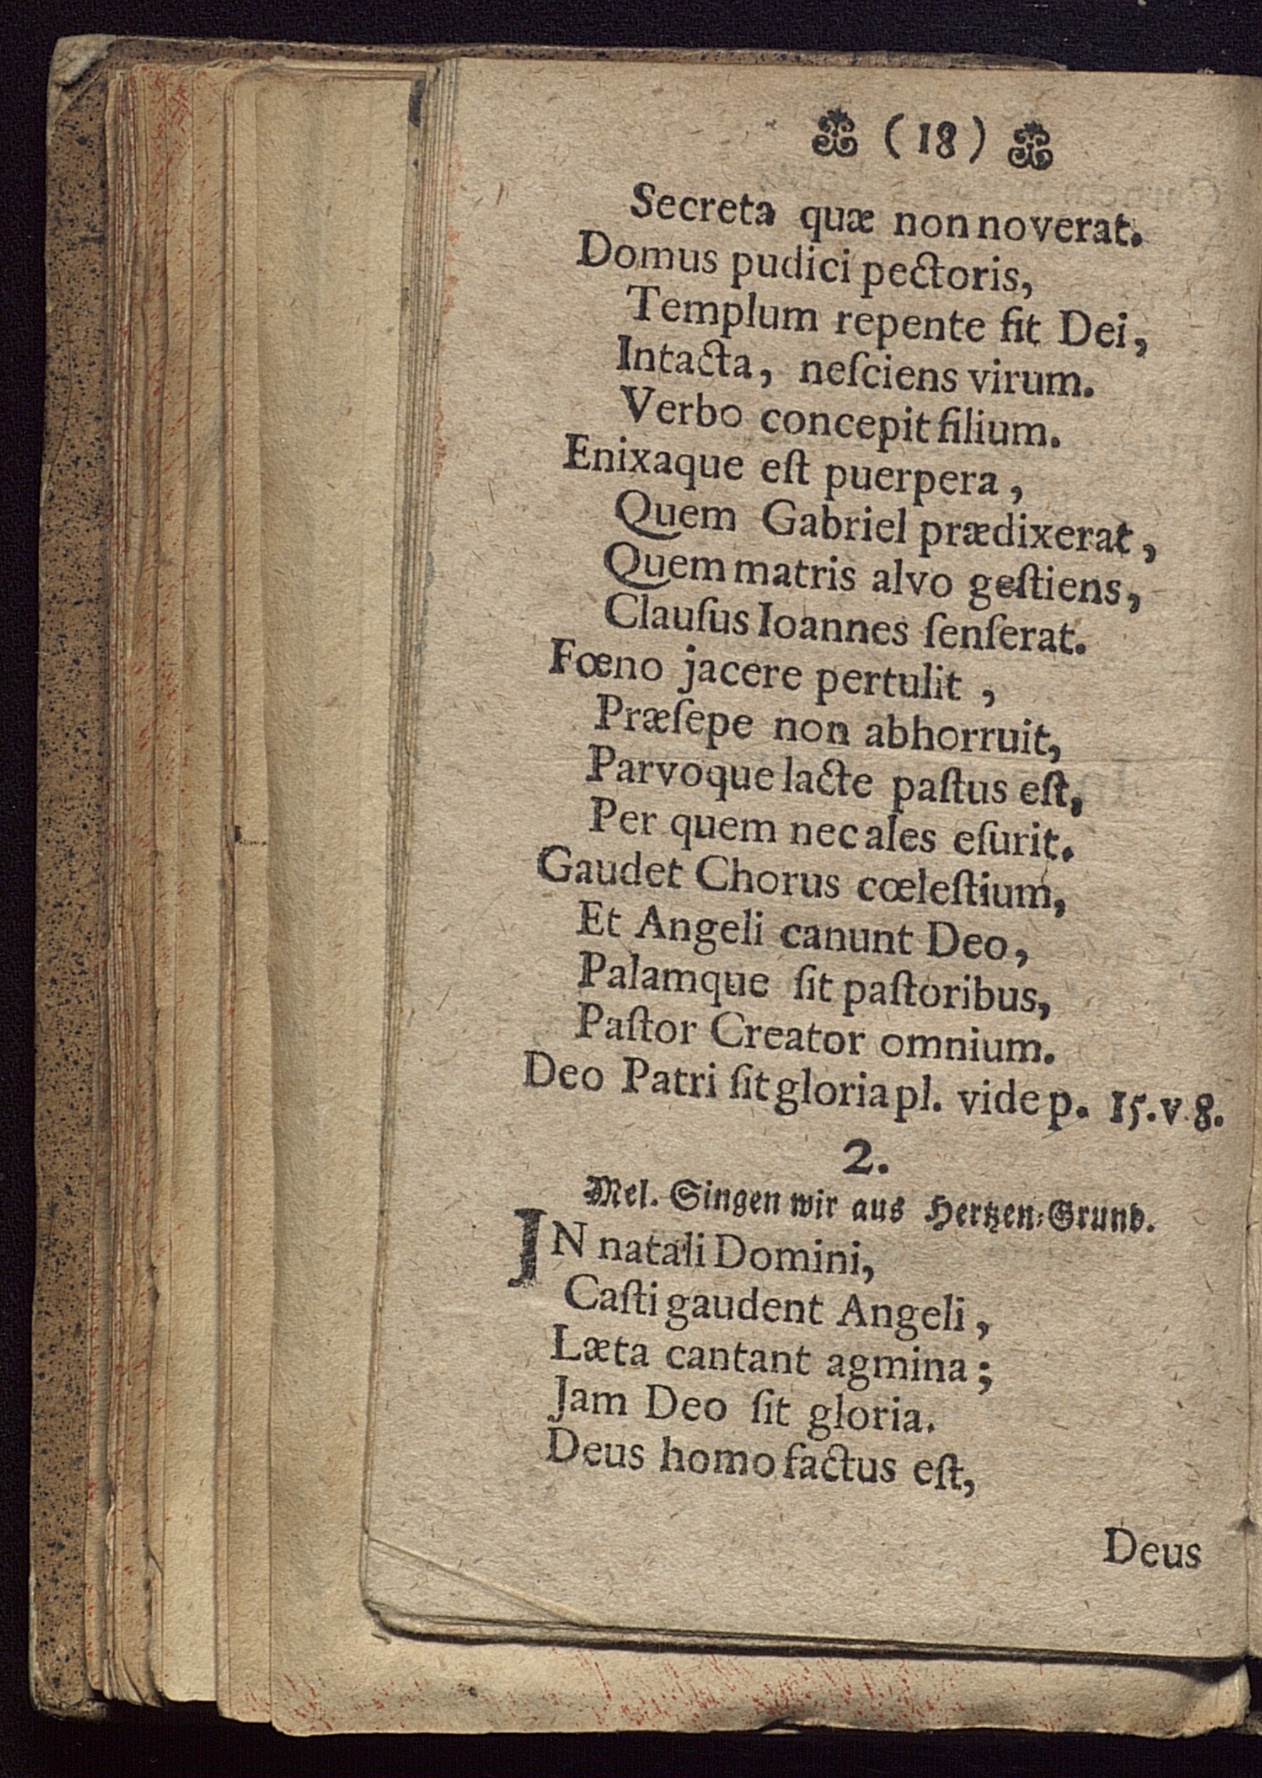 (18)
Secreta quæ non noverat.
Domus pudici pectoris,
Templum repente fit Dei,
Intacta, neſciens virum.
Verbo concepit filium.
Enixaque eſt puerpera,
Quem Gabriel prædixerat,
Quem matris alvo geſtiens,
Clauſus Ioannes ſenſerat.
Fœno jacere pertulit,
Præſepe non abhorruit,
Parvoque lacte paſtus eſt,
Per quem nec ales eſurit.
Gaudet Chorus cœleſtium,
Et Angeli canunt Deo,
Palamque ſit paſtoribus,
Paſtor Creator omnium.
Deo Patri ſit gloria pl. vide p. 15. v. 8.
2.
Mel. Singen wir aus Hertzen-Grund.
IN natali Domini,
Caſti gaudent Angeli,
Læta cantant agmina;
Jam Deo ſit gloria.
Deus homo factus eſt,
Deus